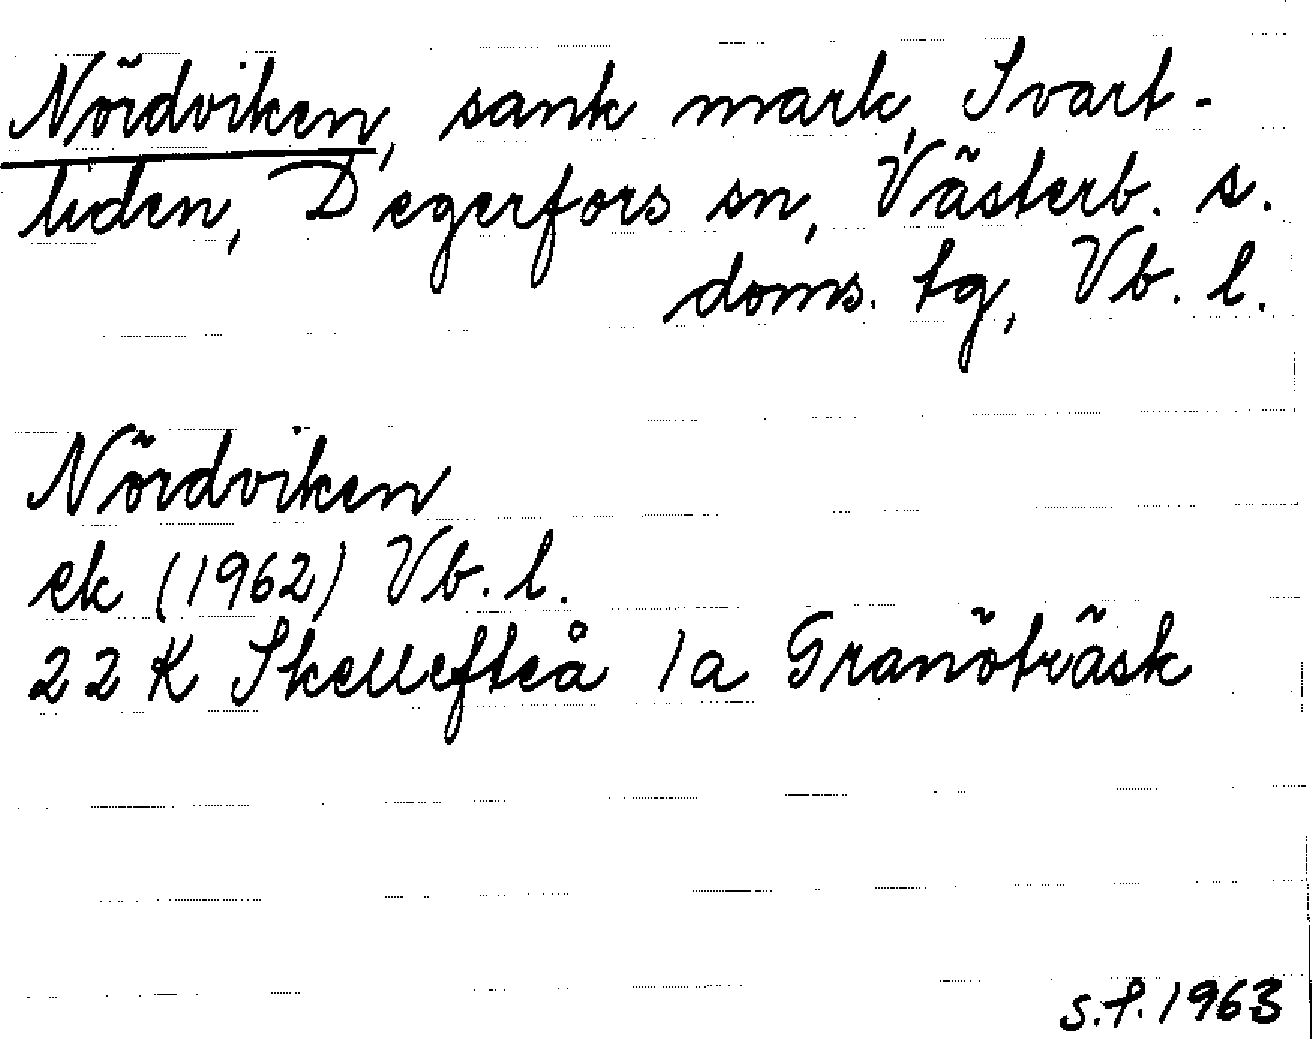 Nördviken, sank mark, Svart-
liden, Degerfors sn, Västerb. s.
doms. tg, Vb. l.
Nördviken
ek (1962) Vb. l.
22 K Skellefteå 1a Granöträsk
s.f. 1963